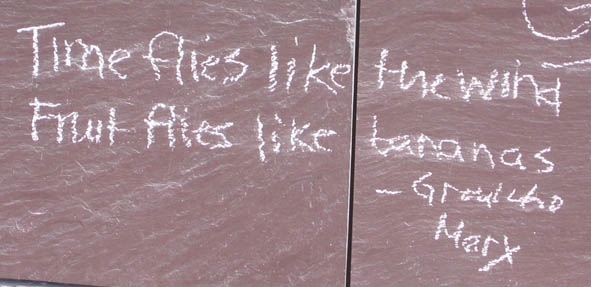 Time flies like the wind
Fruit flies like bananas
- Groucho
Marx